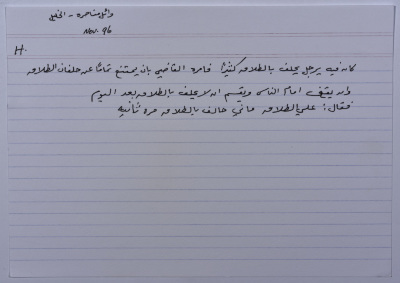 وائل مناصره - الخليل
Nov. 96
H.
كان في يرجل يحلف بالطلاق كثيرًا فامره القاضي بان يمتنع تمامًا عن حلفان الطلاق
وان يقف امام الناس ويقسم انه لا يحلف بالطلاق بعد اليوم
فقال: علي الطلاق ماني حالف بالطلاق مره ثانيه